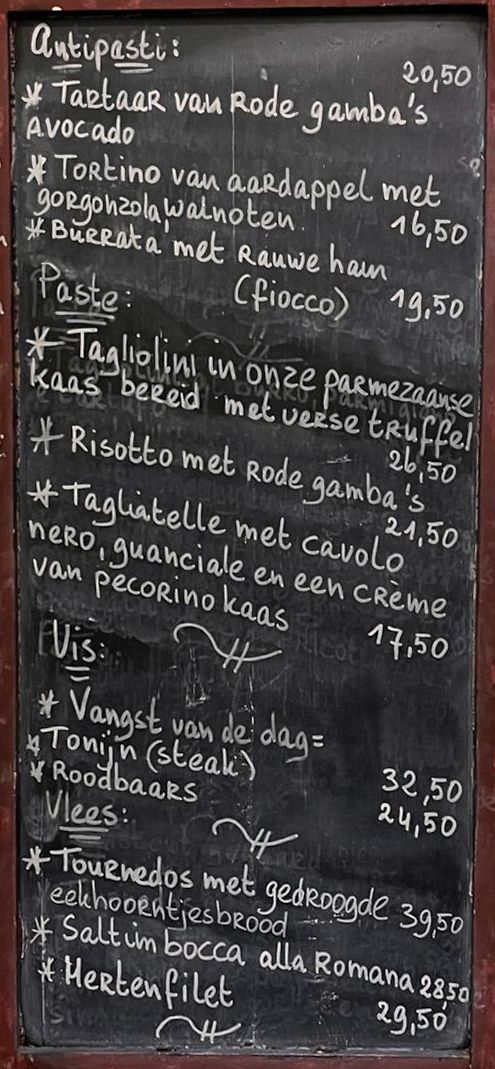 Antipasti:
20,50
* Tartaar van Rode gamba's
Avocado
* Tortino van aardappel met
gorgonzola, walnoten. 16,50
* Burrata met Rauwe ham
(fiocco) 19,50
Paste:
* Tagliolini in onze parmezaanse
kaas bereid met verse truffel
26,50
* Risotto met Rode gamba's
21,50
* Tagliatelle met cavolo
nero, guanciale en een crème
van pecorino kaas
17,50
Vis:
* Vangst van de dag=
* Tonijn (steak) 32,50
* Roodbaars 24,50
Vlees:
* Tournedos met gedroogde
eekhoorntjesbrood 39,50
* Saltimbocca alla Romana 28,50
* Hertenfilet 29,50